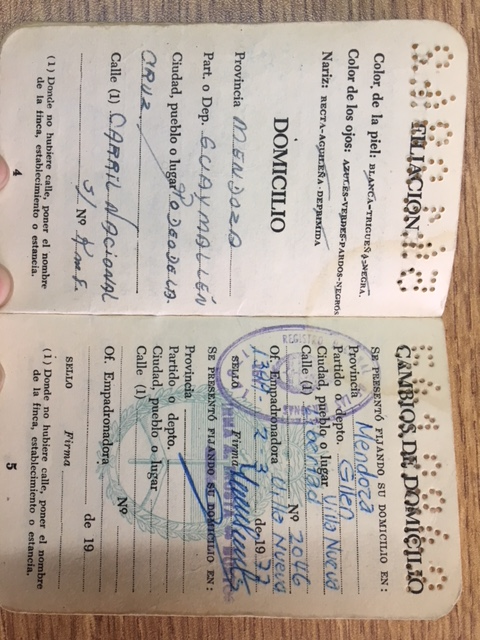 FILIACIÓN
Color, de la piel: BLANCA-TRIGUEÑA-NEGRA.
Color de los ojos: AZULES-VERDES-PARDOS-NEGROS
Nariz: RECTA-AGUILEÑA-DEPRIMIDA
DOMICILIO
Provincia MENDOZA
Part. o Dep. GUAYMALLÉN
Ciudad, pueblo o lugar
CRUZ
Calle (1) CARRIL NACIONAL
S/ Nº
(1) Donde no hubiere calle, poner el nombre
de la finca, establecimiento o estancia.
4
CAMBIOS DE DOMICILIO
SE PRESENTÓ FIJANDO SU DOMICILIO EN:
Provincia Mendoza
Partido o depto. Gllen
Ciudad, pueblo o lugar Villa Nueva
Calle (1) Libertad Nº 2046
Of. Empadronadora Villa Nueva
2-3 de 19 77
SELLO Firma
SE PRESENTÓ FIJANDO SU DOMICILIO EN:
Provincia
Partido o depto.
Ciudad, pueblo o lugar
Calle (1) Nº
Of. Empadronadora
de 19
SELLO Firma
(1) Donde no hubiere calle, poner el nombre
de la finca, establecimiento o estancia.
5